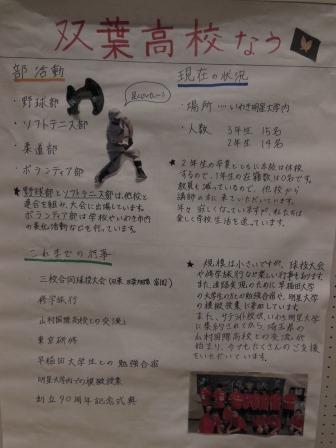 双葉高校なう
部活動
・野球部
・ソフトテニス部
・柔道部
・ボランティア部
★野球部とソフトテニス部は他校と
連合を組み、大会に出場しています。
ボランティア部は学校やいわき市内
の美化活動などを行っています。
これまでの行事
三校合同球技大会
修学旅行
山村国際高校との交流
東京研修
早稲田大学生との勉強合宿
明星大学内での模擬授業
創立90周年記念式典
現在の状況
・場所…いわき明星大学内
・人数 3年生 15名
2年生 14名
★2年生の卒業とともに本校は休校
するので、1年生の在籍数は0名です。
教員も減っているので、他校から
講師の方に来ていただいています。
年々寂しくなっていますが、私たちは
楽しく学校生活を送っています。
★規模は小さいですが、球技大会
や修学旅行など楽しい行事もあります。
また、進路実現のために早稲田
の大学生の方との勉強合宿や、明星大学
の模擬授業に参加しています。
また、サテライト校が、いわき明星大学
に集約されてから、埼玉県の
山村国際高校との交流が
始まり、今でもたくさんのご支援
をいただいています。